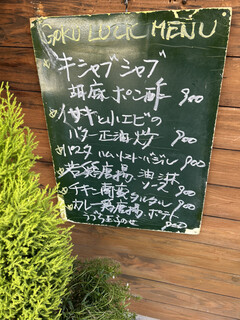 GOKU LUCK MENU
キシャブシャブ
胡麻ポン酢 900
イサキと小エビの
バター正油炒 900
ハムトマト・バジル 900
若鶏唐揚 油淋
ソース 900
チキン南蛮タルタル 900
カレー 唐揚 ポテト
900